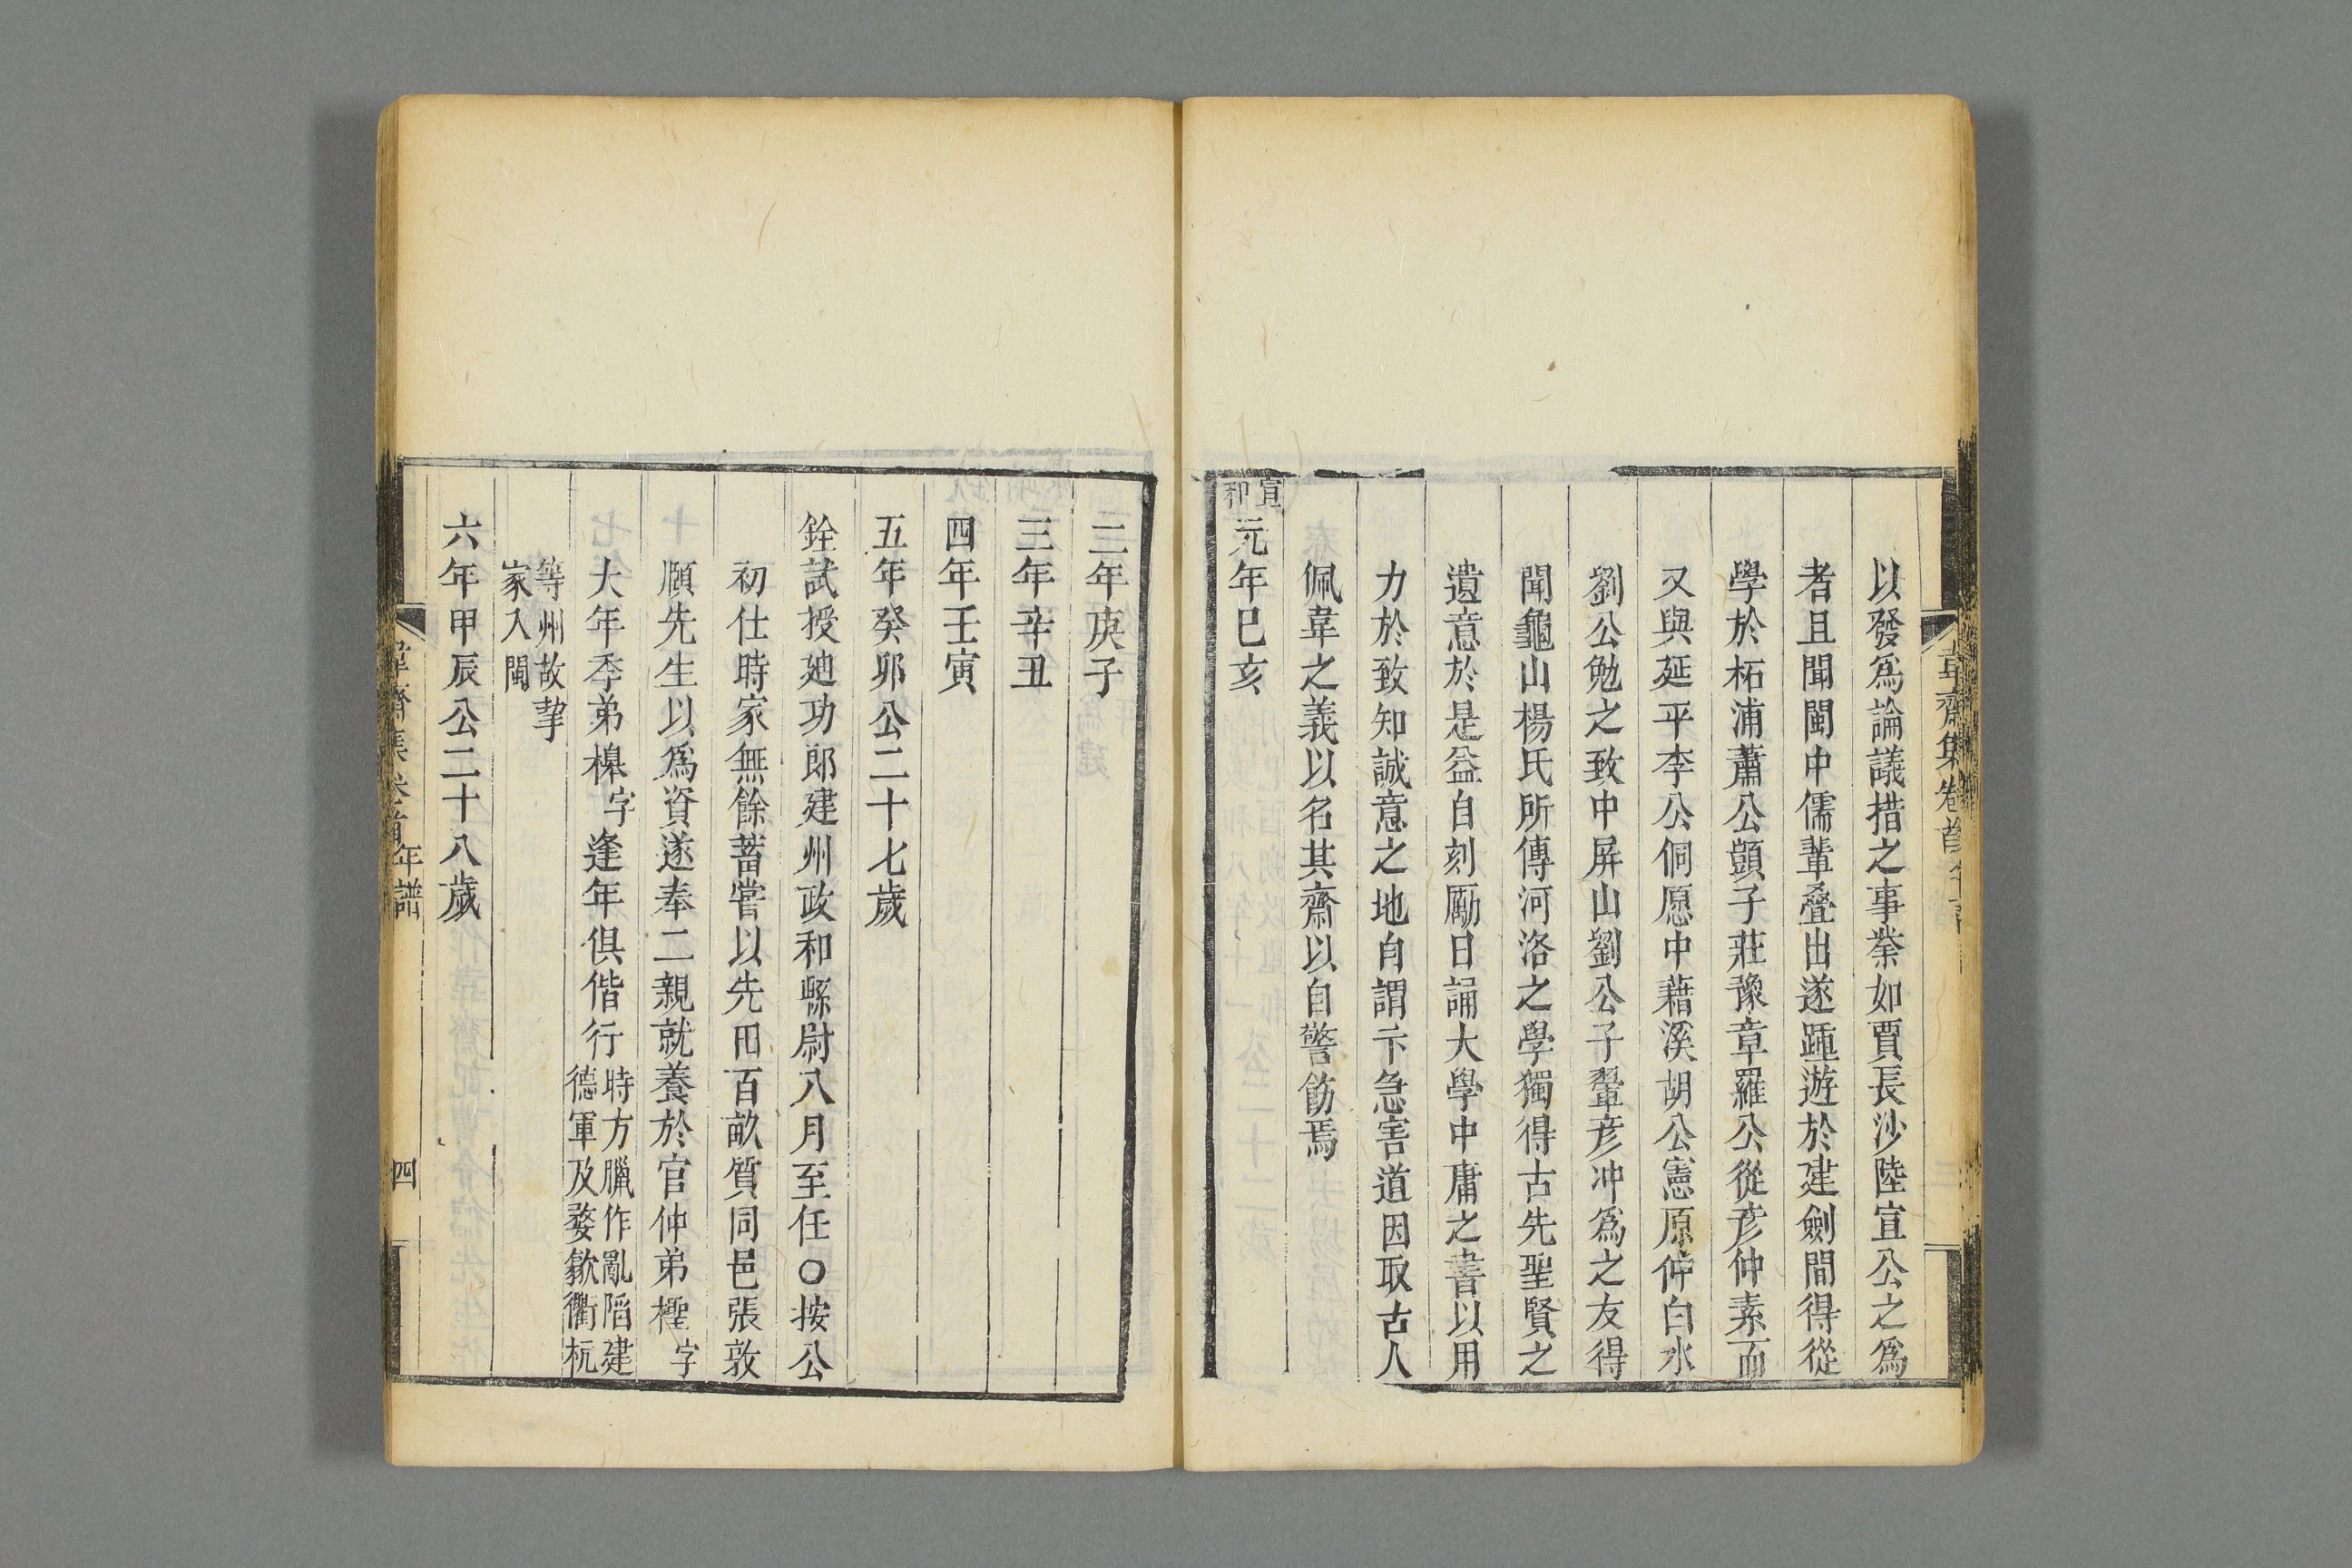 以發爲論議措之事業如賈長沙陸宣公之爲
者且聞閩中儒輩叠出遂踵遊於建劍間得從
學於柘浦蕭公顗子莊豫章羅公從彦仲素而
又與延平李公侗愿中藉溪胡公憲原仲白水
劉公勉之致中屏山劉公子翬彦冲爲之友得
聞龜山楊氏所傳河洛之學獨得古先聖賢之
遺意於是益自刻勵日誦大學中庸之書以用
力於致知誠意之地自謂卞急害道因取古人
佩韋之義以名其齋以自警飭焉
宣和元年已亥
二年庚子
三年辛丑
四年壬寅
五年癸卯公二十七歲
銓試授廸功郎建州政和縣尉八月至任○按公
初仕時家無餘蓄嘗以先田百畝質同邑張敦
頤先生以爲資遂奉二親就養於官仲弟檉字
大年季弟槔字逢年俱偕行時方臘作亂陷建
德軍及婺歙衢杬
等州故挈
家入閩
六年甲辰公二十八歲
韋齋集卷首 年譜 四
韋齋集卷首